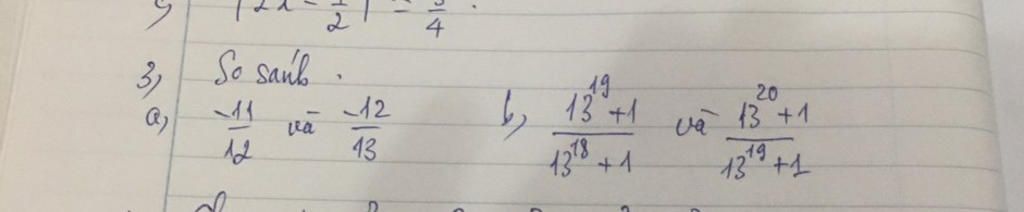 3, So sánh.
a, -11/12 và -12/13 b, (13^19+1)/(13^18+1) và (13^20+1)/(13^19+1)